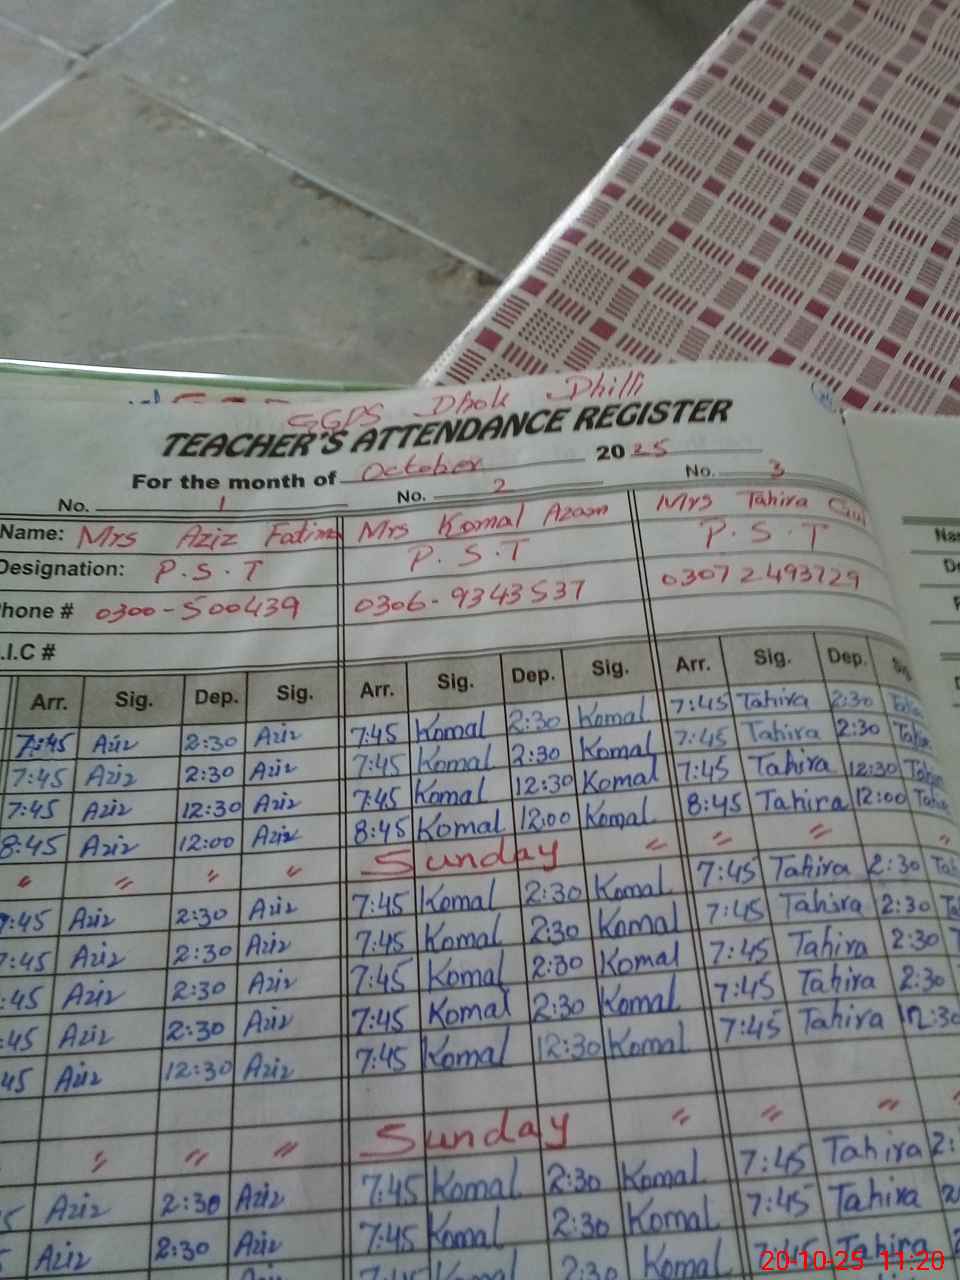 GGPS Dhok Dhilli
TEACHER'S ATTENDANCE REGISTER
For the month of October 2025
No. 1 No. 2 No. 3
Name: Mrs Aziz Fatima Mrs Komal Azam Mrs Tahira Gul
Designation: P.S.T P.S.T P.S.T
hone # 0300-500439 0306-9343537 03072493729
.I.C #
Arr. Sig. Dep. Sig. Arr. Sig. Dep. Sig. Arr. Sig. Dep.
7:45 Aziz 2:30 Aziz 7:45 Komal 2:30 Komal 7:45 Tahira 2:30
7:45 Aziz 2:30 Aziz 7:45 Komal 2:30 Komal 7:45 Tahira 2:30
7:45 Aziz 12:30 Aziz 7:45 Komal 12:30 Komal 7:45 Tahira 12:30
8:45 Aziz 12:00 Aziz 8:45 Komal 12:00 Komal 8:45 Tahira 12:00
" " " " Sunday " " " "
7:45 Aziz 2:30 Aziz 7:45 Komal 2:30 Komal 7:45 Tahira 2:30
7:45 Aziz 2:30 Aziz 7:45 Komal 2:30 Komal 7:45 Tahira 2:30
:45 Aziz 2:30 Aziz 7:45 Komal 2:30 Komal 7:45 Tahira 2:30
:45 Aziz 2:30 Aziz 7:45 Komal 2:30 Komal 7:45 Tahira 2:30
45 Aziz 12:30 Aziz 7:45 Komal 12:30 Komal 7:45 Tahira 12:30
" " " Sunday " " " "
5 Aziz 2:30 Aziz 7:45 Komal 2:30 Komal 7:45 Tahira 2:
Aziz 2:30 Aziz 7:45 Komal 2:30 Komal 7:45 Tahira
Aziz 7:45 Komal 2:30 Komal 7:45 Tahira
20-10-25 11:20